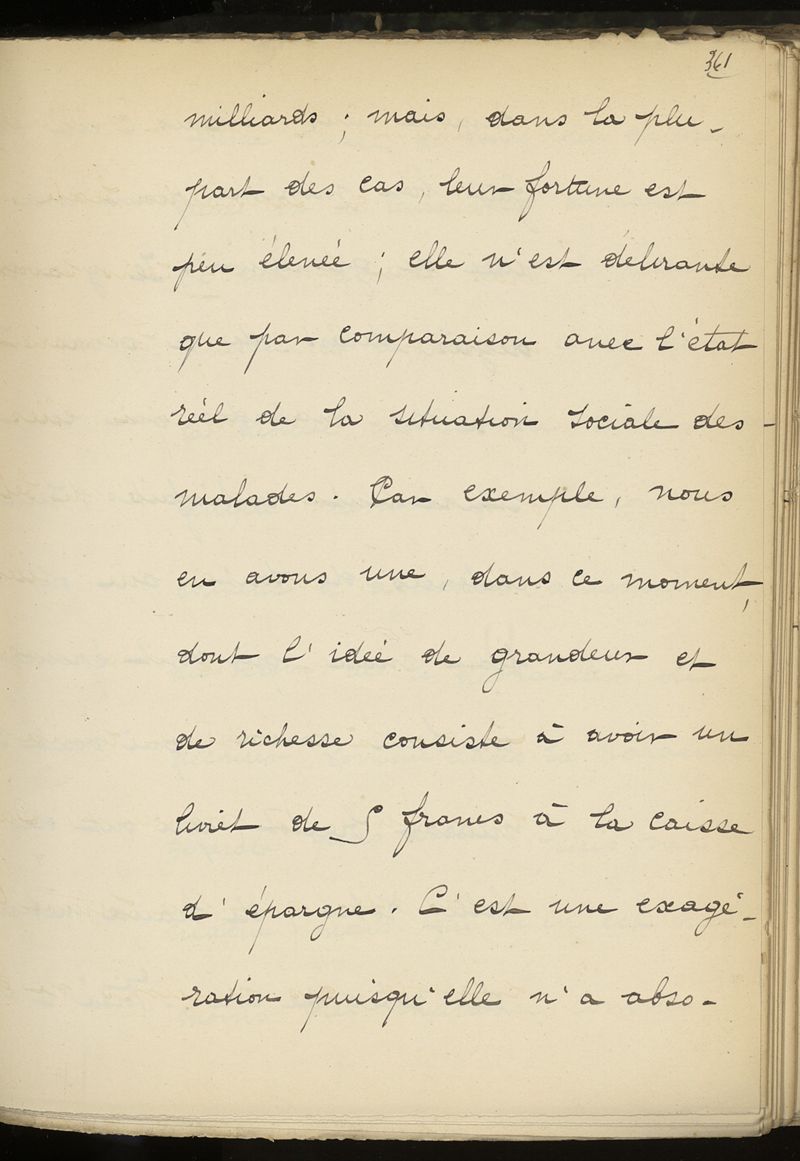 361
milliards ; mais, dans la plu-
part des cas, leur fortune est
peu élevée ; elle n'est délirante
que par comparaison avec l'état
réel de la situation sociale des
malades. Par exemple, nous
en avons une, dans ce moment,
dont l'idée de grandeur et
de richesse consiste à avoir un
livret de 5 francs à la caisse
d'épargne. C'est une exagé-
ration puisqu'elle n'a abso-